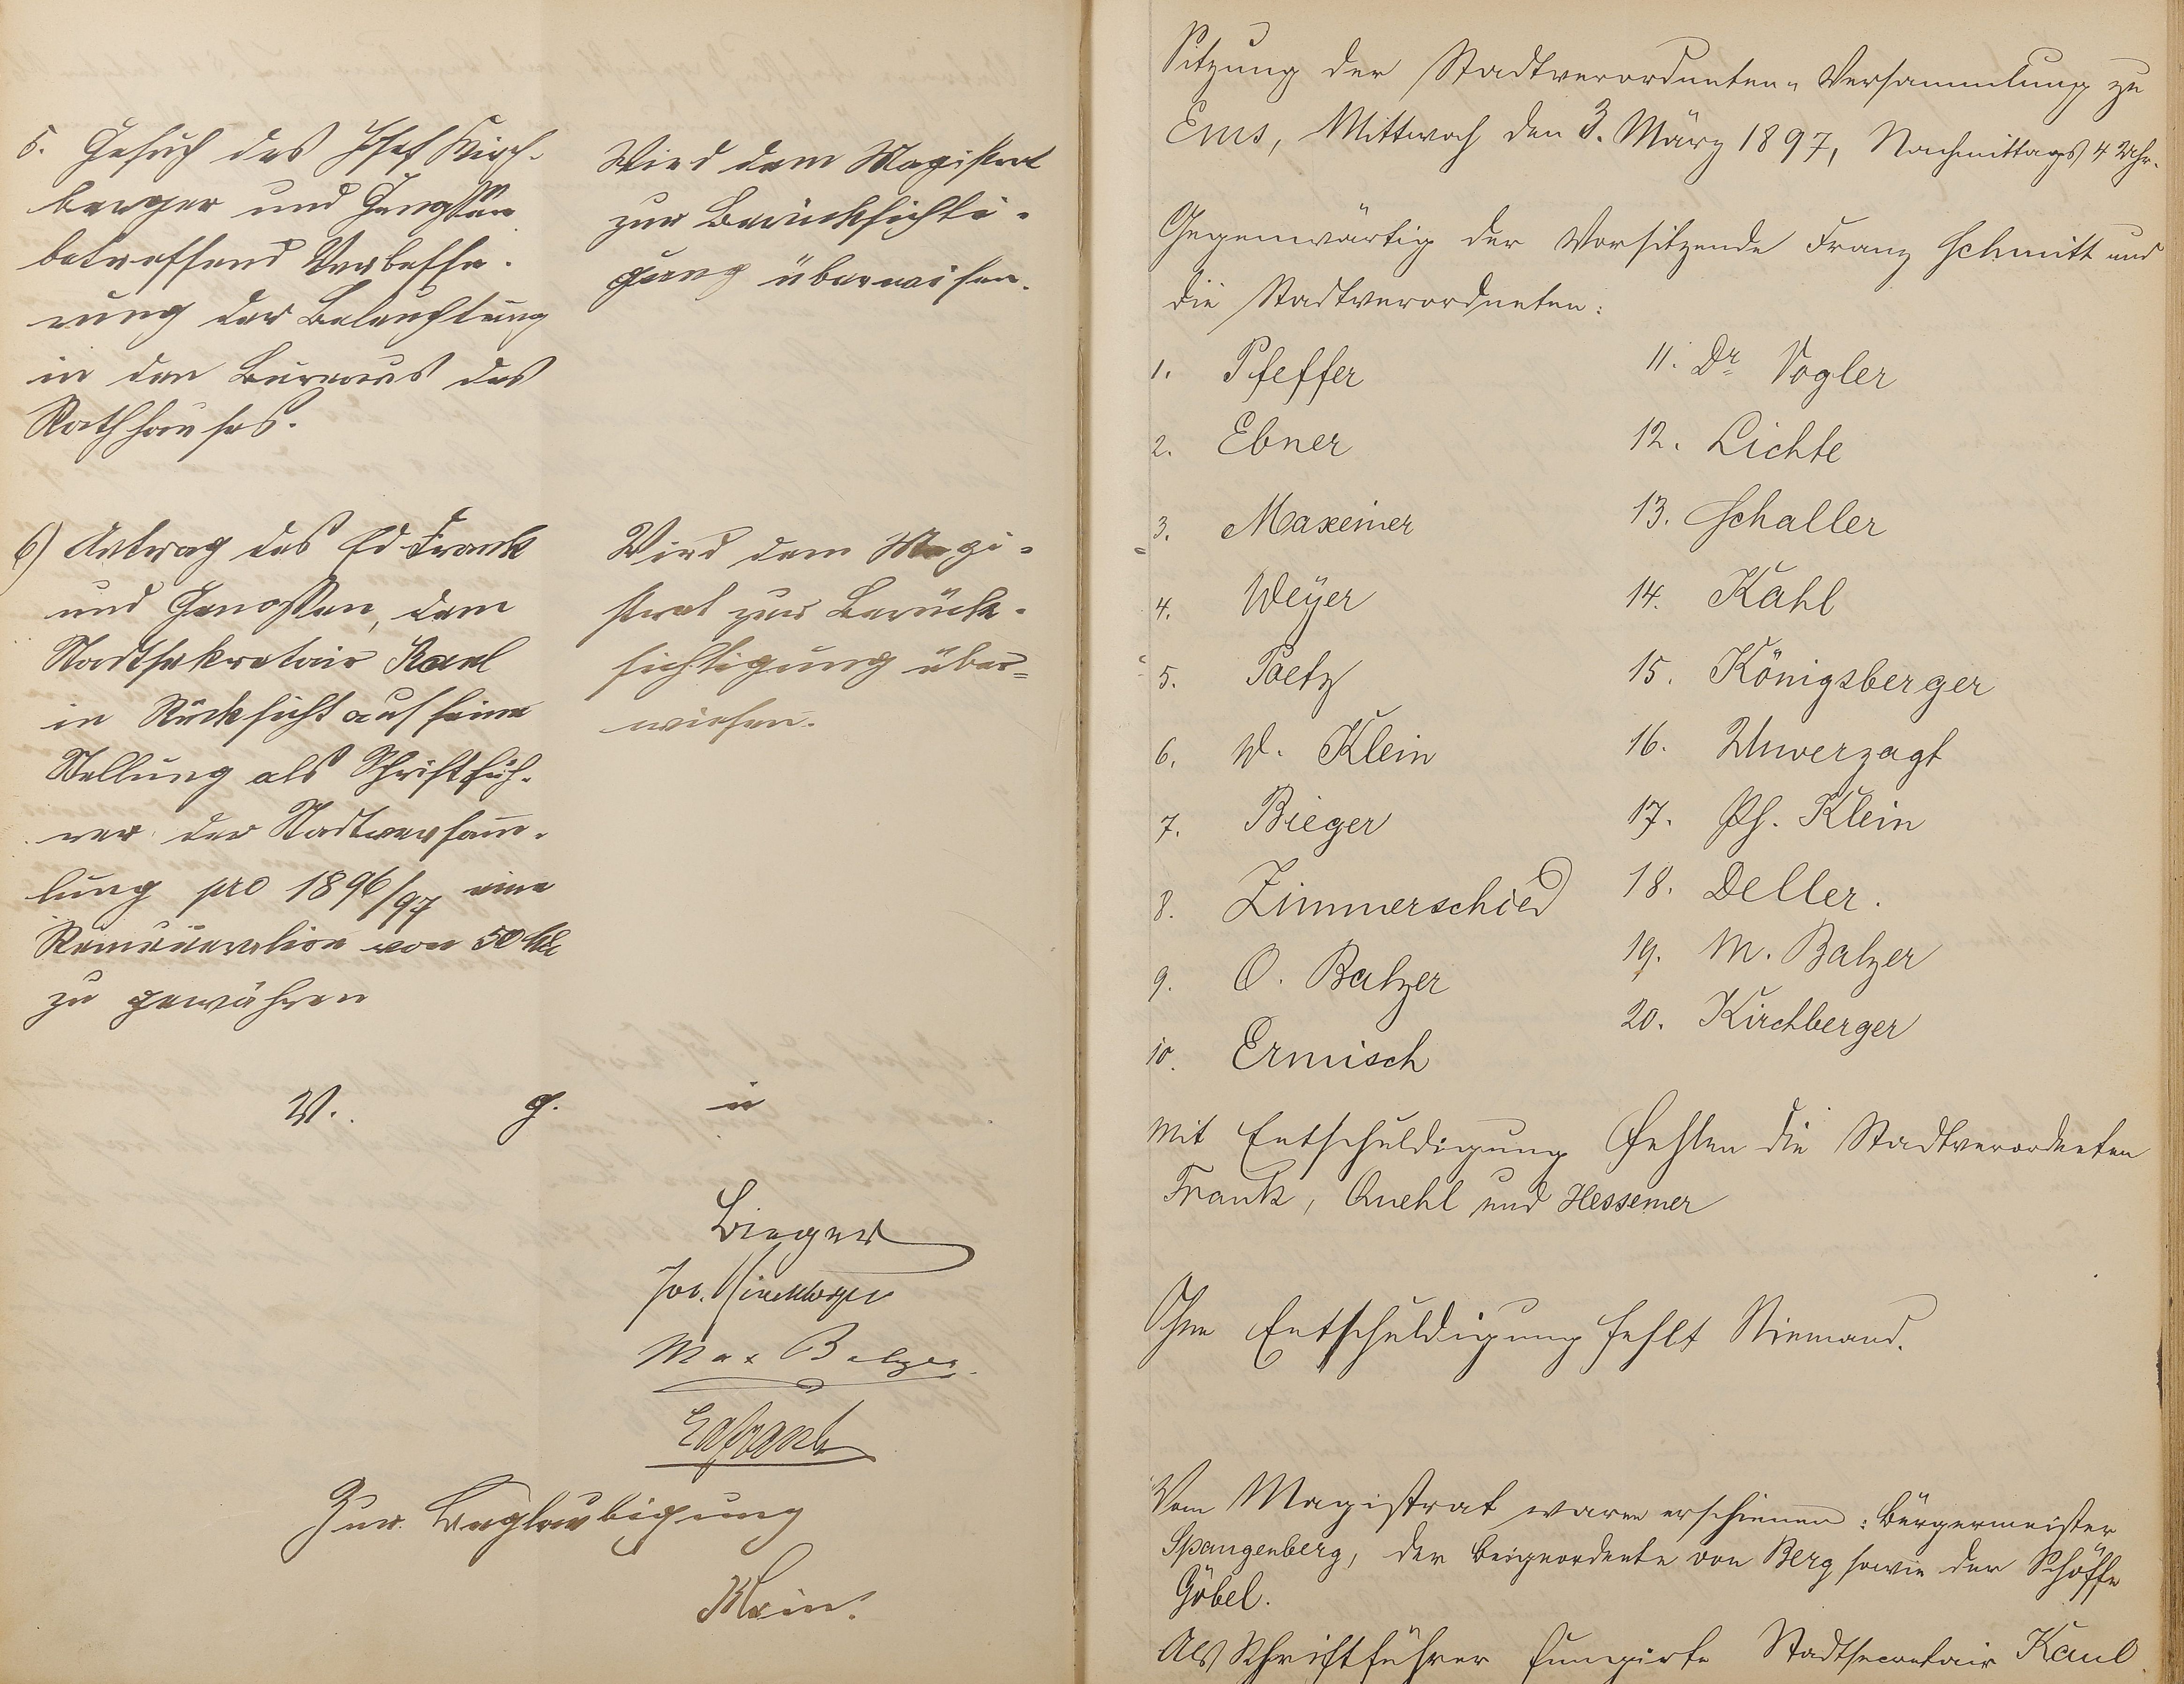 5. Gesuch des Josef Kirch-
berger und Genossen
betreffend Verbesse-
rung der Beleuchtung
in den Bureaus des
Rathhauses.
Wird dem Magistrat
zur Berücksichti-
gung überwiesen.
6) Antrag des Ed Frank
und Genossen, dem
Stadtsekretair Kaul
in Rücksicht auf seine
Stellung als Schriftfüh-
rer der Stadtversam̅-
lung pro 1896/97 eine
Remuneration von 50 Mk
zu gewähren
Wird dem Magi-
strat zur Berück-
sichtigung über=
wiesen.
V. g. u
Bieger
Jos. Kirchberger
Max Balzer.
Ed Frank
Zur Beglaubigung
Klein.
Sitzung der Stadtverordneten-Versammlung zu
Ems, Mittwoch den 3. März 1897, Nachmittags 4 Uhr.
Gegenwärtig der Vorsitzende Franz Schmitt und
die Stadtverordneten:
1. Pfeffer
2. Ebner
3. Maxeiner
4. Weyer
5. Paetz
6. W. Klein
7. Bieger
8. Zimmerschied
9. O. Balzer
10. Ermisch
11. Dr Vogler
12. Lichte
13. Schaller
14. Kahl
15. Königsberger
16. Unverzagt
17. Ph. Klein
18. Deller.
19. M. Balzer
20. Kirchberger
Mit Entschuldigung fehlen die Stadtverordneten
Frank, Quehl und Hessemer
Ohne Entschuldigung fehlt Niemand.
Vom Magistrat waren erschienen: Bürgermeister
Spangenberg, der Beigeordnete von Berg sowie der Schöffe
Göbel.
Als Schriftführer fungirte Stadtsecretair Kaul.